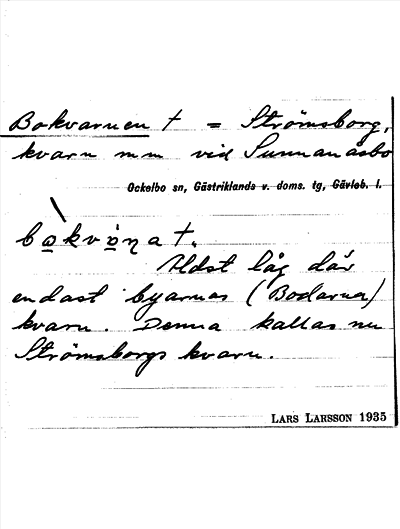 Bokvarnen † = Strömsborg,
kvarn mm vid Sunnanåsbo
Ockelbo sn, Gästriklands v. doms. tg, Gävleb. l.
bo̲kvɒ̲ṇa †.
Äldst låg där
endast byarnas (Bodarna)
kvarn. Denna kallas nu
Strömsborgs kvarn.
LARS LARSSON 1935